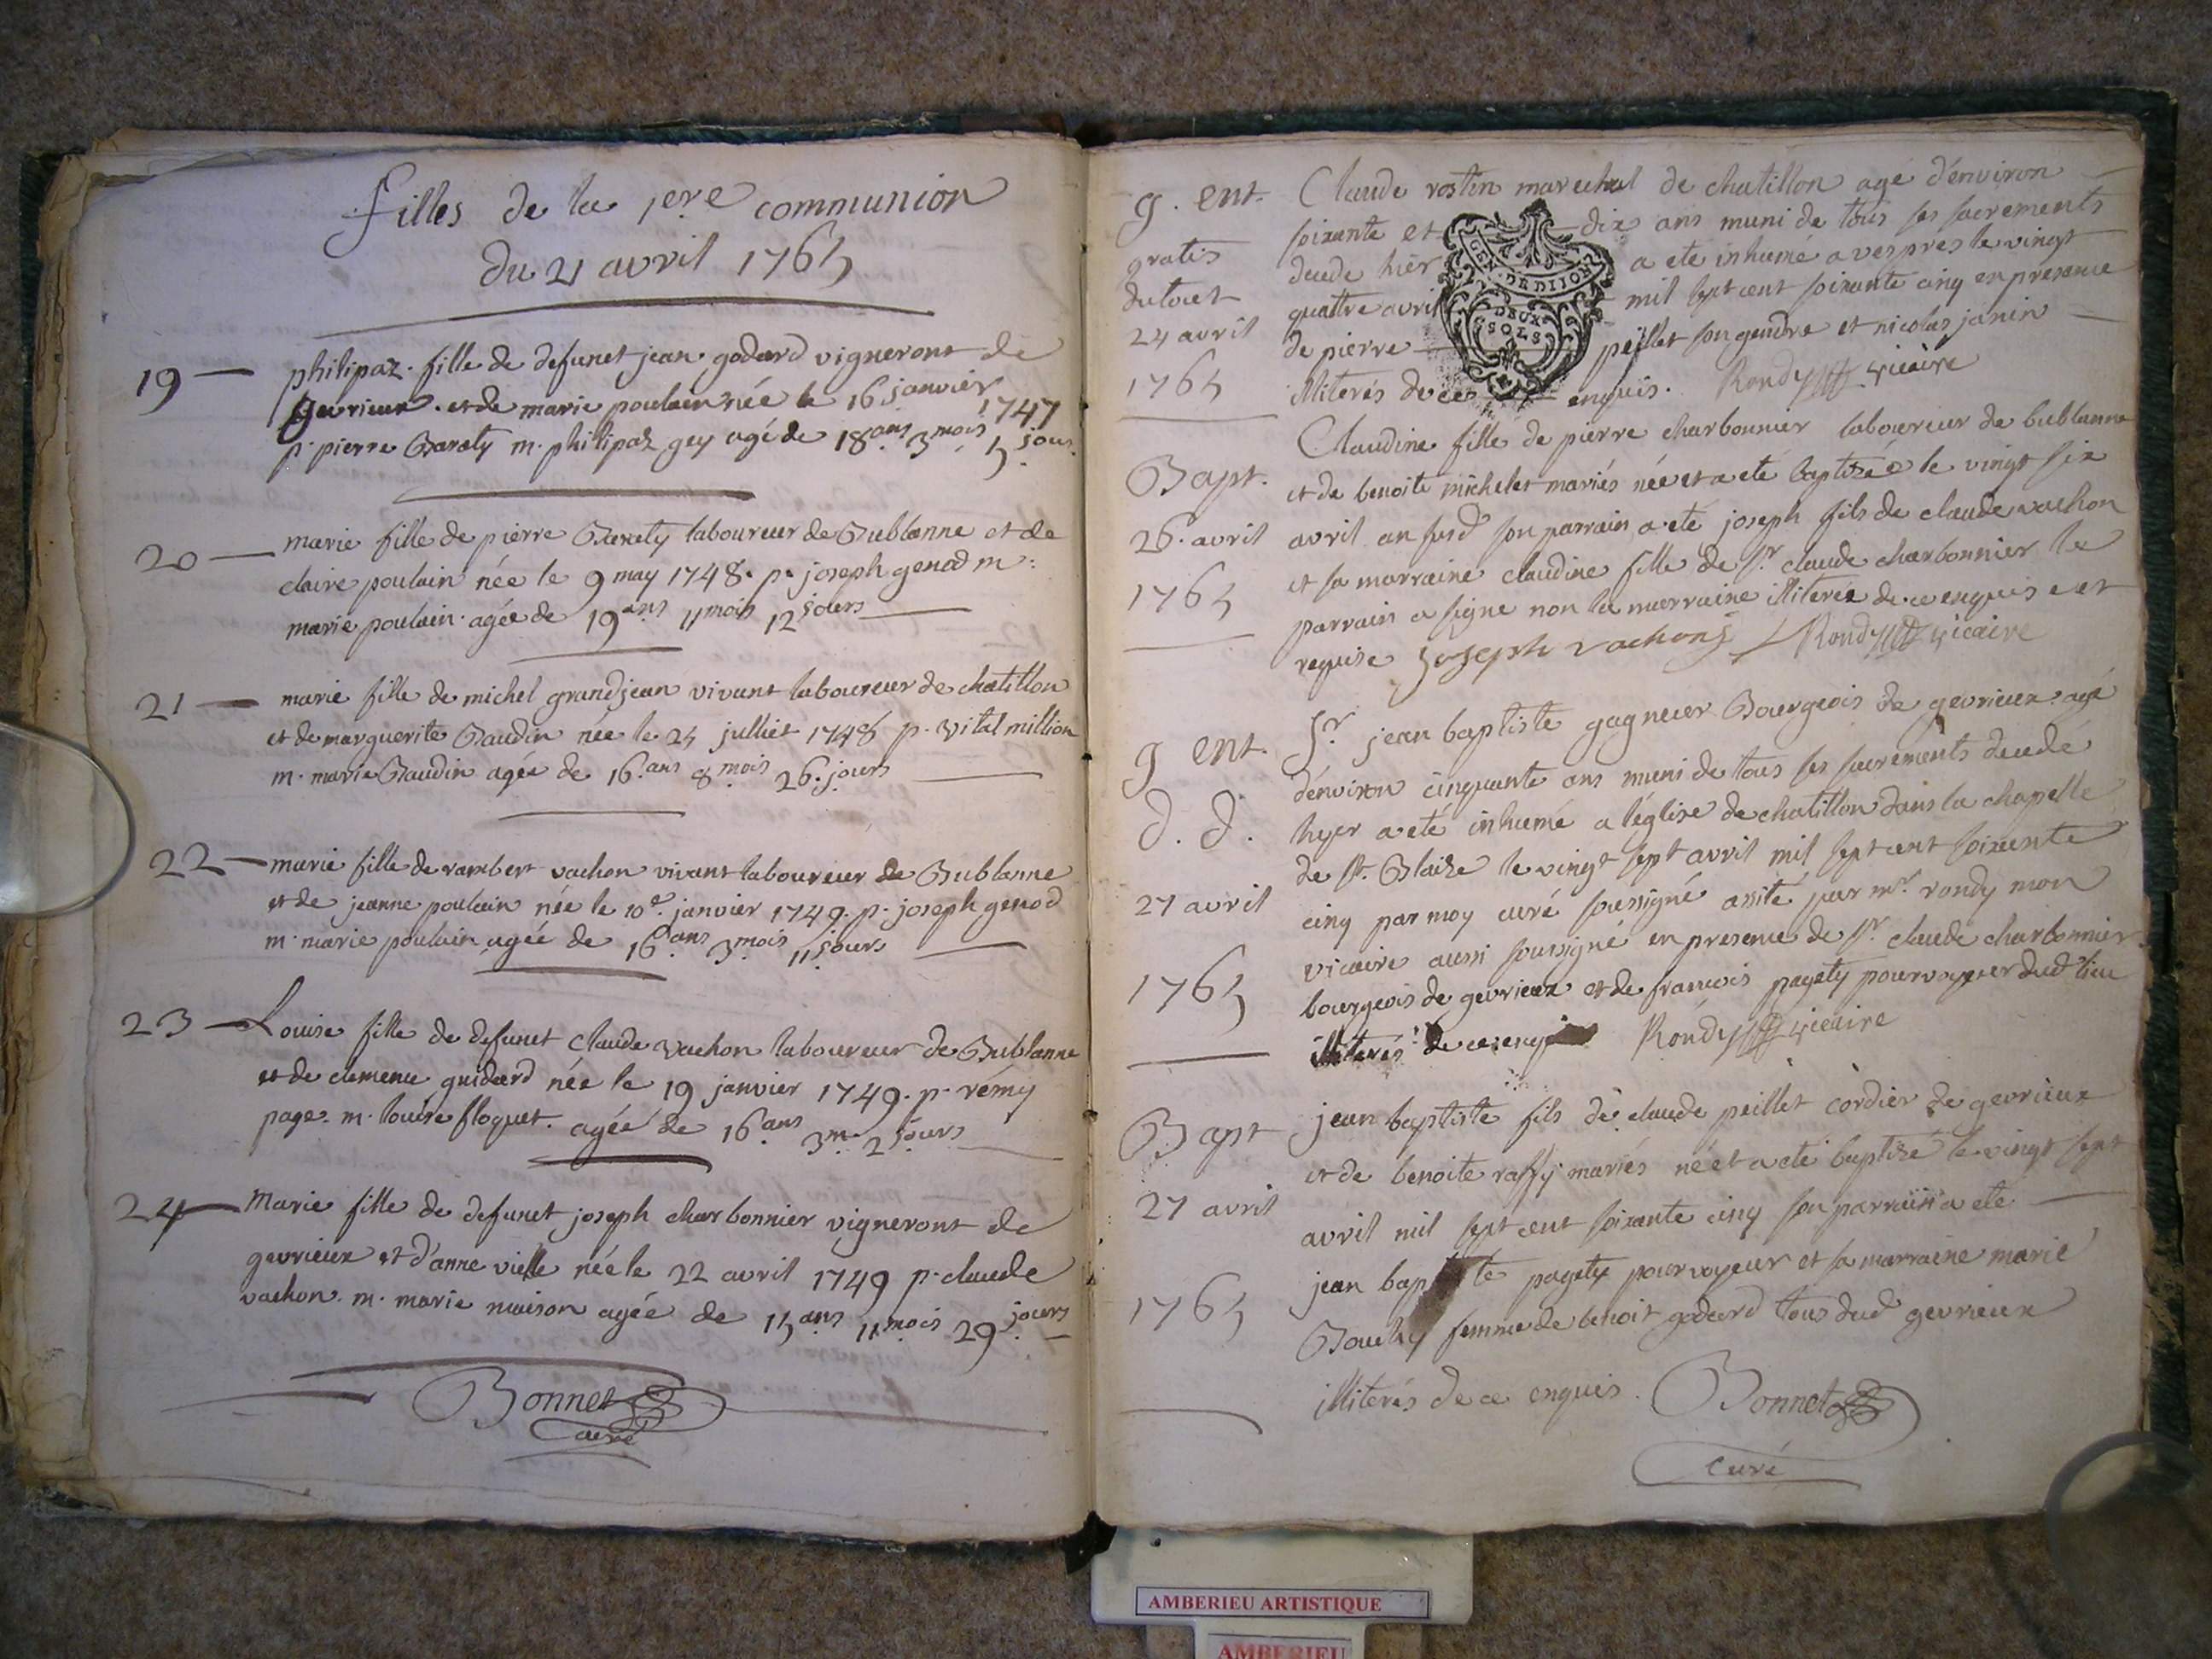 filles de la 1ere communion
du 21 avril 1765
19 — philipaz fille de defunct jean godard vigneront de
gevrieux et de marie poulain née le 16 janvier 1747
p. pierre Baraty m. philipaz gey agé de 18 ans 3 mois 5 jours
20 — marie fille de pierre Baraty laboureur de Bublanne et de
claire poulain née le 9 may 1748. p. joseph genod m.
marie poulain agée de 19 ans 11 mois 12 jours
21 — marie fille de michel grandjean vivant laboureur de chatillon
et de marguerite Baudin née le 25 julliet 1748 p. vital million
m. marie Baudin agée de 16 ans 8 mois 26 jours
22 — marie fille de rambert vachon vivant laboureur de Bublanne
et de jeanne poulain née le 10e janvier 1749. p. joseph genod
m. marie poulain agée de 16 ans 3 mois 11 jours
23 — Louise fille de defunct claude vachon laboureur de Bublanne
et de clemence guidard née le 19 janvier 1749. p. rémy
page. m. louise floquet. agée de 16 ans 3 m. 2 jours
24 — Marie fille de defunct joseph charbonnier vigneront de
gevrieux et d'anne vielle née le 22 avril 1749 p. claude
vachon. m. marie maison agée de 15 ans 11 mois 29 jours
Bonnet
curé
g. ent.
gratis
du tout
24 avril
1765
Claude rostin marechal de chatillon agé d'environ
soixante et dix ans muni de tous ses sacrements
decede hier a eté inhumé a vespres le vingt
quattre avril mil sept cent soixante cinq en presence
de pierre peillet son gendre et nicolas janin
illiterés de ce enquis. Rondy vicaire
GEN. DE DIJON
DEUX
SOLS
Bapt.
26. avril
1765
Claudine fille de pierre charbonnier laboureur de bublanne
et de benoite michelet mariés née et a eté baptizée le vingt six
avril an susd son parrain a eté joseph fils de claude vachon
et sa marraine claudine fille de sr. claude charbonnier le
parrain a signe non la marraine illiterée de ce enquise et
requise joseph vachon Rondy vicaire
g ent.
d. d.
27 avril
1765
Sr. jean baptiste gagneur Bourgeois de gevrieux agé
d'environ cinquante ans muni de tous ses sacrements decedé
hyer a eté inhumé a l'église de chatillon dans la chapelle
de st. Blaize le vingt sept avril mil sept cent soixante
cinq par moy curé soussigné assité par mr. rondy mon
vicaire aussi soussigné en presence de sr. claude charbonnier
bourgeois de gevrieux et de francois pagety pourvoyeur dud lieu
illiterés de ce enquis Rondy vicaire
Bapt
27 avril
1765
jean baptiste fils de claude peillet cordier de gevrieux
et de benoite raffy mariés né et a eté baptizé le vingt sept
avril mil sept cent soixante cinq son parrain a eté
jean baptiste pagety pourvoyeur et sa marraine marie
Bouchy femme de benoit godard tous dud gevrieux
illiterés de ce enquis. Bonnet
curé
AMBERIEU ARTISTIQUE
AMBERIEU